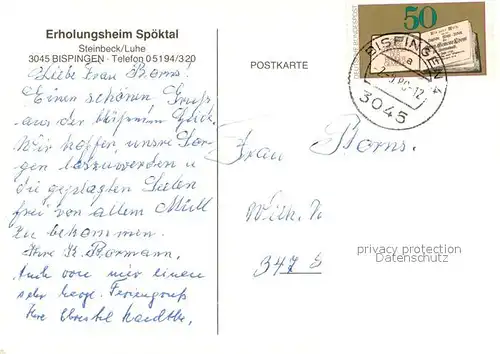 Erholungsheim Spöktal
Steinbeck/Luhe
3045 BISPINGEN · Telefon 05194/320
Liebe Frau Borns!
Einen schönen Gruß
aus der
Wir hoffen, unsre Sor-
gen loszuwerden u
die geplagten Seelen
frei von allem Müll
zu bekommen.
Ihre R. Bormann.
Auch von mir einen
sehr herzl. Feriengruß
Ihre
POSTKARTE
DEUTSCHE BUNDESPOST
50
BISPINGEN 4
a
3045
Frau Borns.
Wilh.
347
privacy protection
Datenschutz